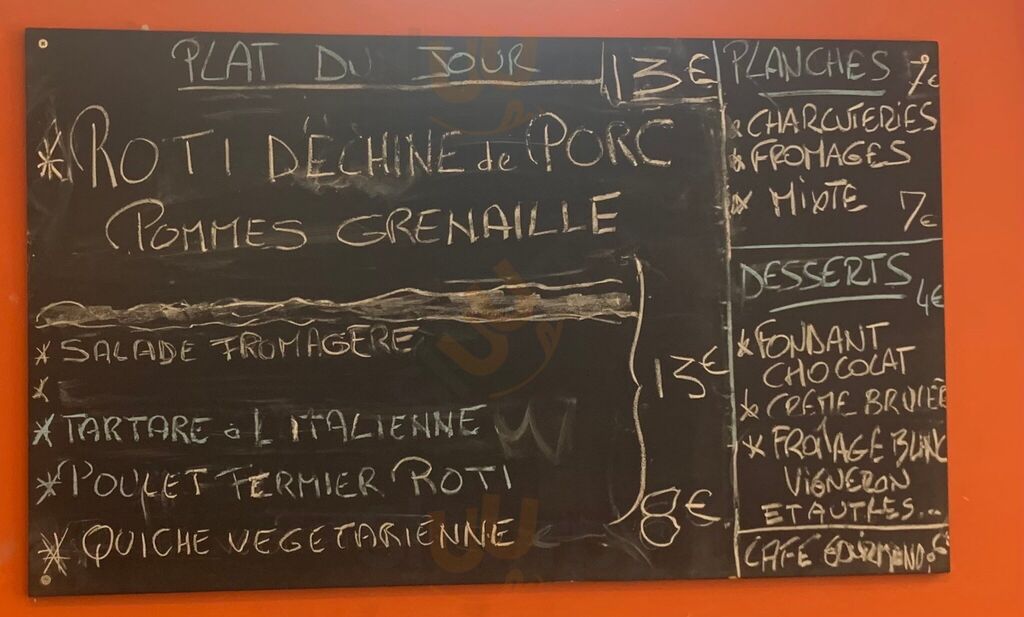 PLAT DU JOUR 13€
* ROTI D'ÉCHINE de PORC
POMMES GRENAILLE
* SALADE FROMAGÈRE
*
* TARTARE à L ITALIENNE
* POULET FERMIER ROTI
13€
* QUICHE VEGETARIENNE 8€
PLANCHES 9€
* CHARCUTERIES
* FROMAGES
* MIXTE 7€
DESSERTS 4€
* FONDANT
CHOCOLAT
* CRÈME BRULÉE
* FROMAGE BLANC
VIGNERON
ET AUTRES...
CAFE GOURMAND